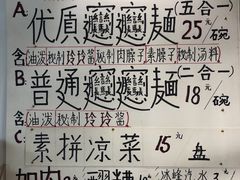 A: (五合一)
优质𰻝𰻝麺 25元/碗
含(油泼秘制玲玲酱 秘制肉臊子素臊子秘制汤料)
B: (二合一)
普通𰻝𰻝麺 18元/碗
含(油泼秘制玲玲酱)
C:
素拼凉菜 15元/盘
加肉
冰峰汽水